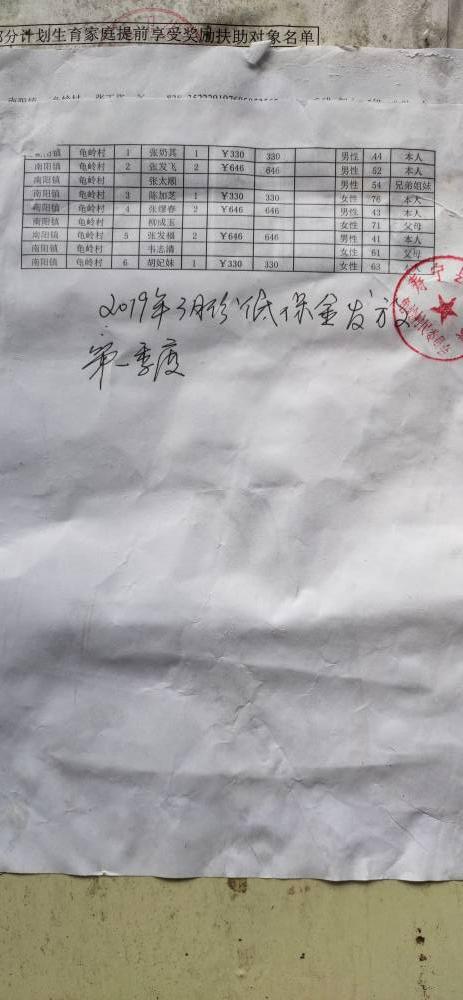 部分计划生育家庭提前享受奖励扶助对象名单
南阳镇 龟岭村
龟岭村 1 张奶其 1 ¥330 330 男性 44 本人
南阳镇 龟岭村 2 张发飞 2 ¥646 646 男性 52 本人
张太顺 男性 54 兄弟姐妹
南阳镇 龟岭村 3 陈加芝 1 ¥330 330 女性 76 本人
南阳镇 龟岭村 4 张缪春 2 ¥646 646 男性 43 本人
南阳镇 龟岭村 柳成玉 女性 71 父母
南阳镇 龟岭村 5 张发福 2 ¥646 646 男性 41 本人
南阳镇 龟岭村 韦志清 女性 61 父母
南阳镇 龟岭村 6 胡妃妹 1 ¥330 330 女性 63
2019年3月份低保金发放
第一季度
寿宁县